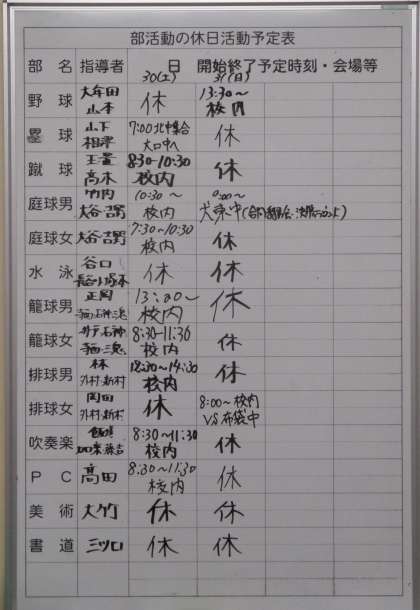 部活動の休日活動予定表
部名 指導者 日 開始終了予定時刻・会場等
30(土) 31(日)
野球 大牟田 山本 休 13:30~ 校内
塁球 山下 相澤 7:00北中集合 大口中へ 休
蹴球 玉置 高木 8:30-10:30 校内 休
庭球男 竹内 大谷・吉野 10:30~ 校内 犬東中
庭球女 大谷・吉野 7:30~10:30 校内 休
水泳 谷口 休 休
籠球男 正岡 13:00~ 校内 休
籠球女 井戸・石神 8:30-11:30 校内 休
排球男 林 外村・新村 12:30~14:30 校内 休
排球女 岡田 外村・新村 休 8:00~校内 VS布袋中
吹奏楽 8:30~11:30 校内 休
PC 高田 8:30~11:30 校内 休
美術 大竹 休 休
書道 三ツ口 休 休